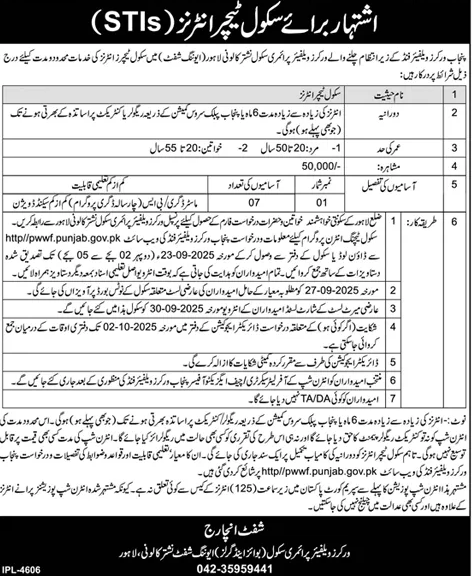 اشتہار برائے سکول ٹیچر انٹرنز (STIs)
پنجاب ورکرز ویلفیئر فنڈ کے زیر انتظام چلنے والے ورکرز ویلفیئر پرائمری سکول نشتر کالونی لاہور (ایوننگ شفٹ) میں سکول ٹیچرز انٹرنز کی خدمات محدود مدت کیلئے درج
ذیل شرائط پر درکار ہیں:
1 نام حیثیت سکول ٹیچر انٹرنز
2 دورانیہ انٹرنز کی زیادہ سے زیادہ مدت 6 ماہ یا پنجاب پبلک سروس کمیشن کے ذریعہ ریگولر/کنٹریکٹ پر اساتذہ کے بھرتی ہونے تک
(جو بھی پہلے ہو) ہوگی۔
3 عمر کی حد 1- مرد: 20 تا 50 سال 2- خواتین: 20 تا 55 سال
4 مشاہرہ: 50,000/-
5 آسامیوں کی تفصیل نمبر شمار آسامیوں کی تعداد کم از کم تعلیمی قابلیت
01 07 ماسٹر ڈگری/بی ایس (چار سالہ ڈگری پروگرام) کم از کم سیکنڈ ڈویژن
6 طریقہ کار: 1 ضلع لاہور کے سکونتی خواہشمند خواتین و حضرات درخواست فارم کے حصول کیلئے پرنسپل ورکرز ویلفیئر پرائمری سکول نشتر کالونی لاہور سے رابطہ کریں۔
سکول ٹیچنگ انٹرن پروگرام کیلئے معلومات و درخواست پنجاب ورکرز ویلفیئر فنڈ کی ویب سائٹ http//pwwf.punjab.gov.pk
سے ڈاؤن لوڈ یا سکول کے دفتر سے وصول کر کے مورخہ 23-09-2025 (دوپہر 02 بجے سے 05 بجے) تک تصدیق شدہ
دستاویزات کے ساتھ جمع کروائیں۔ تمام امیدواران کو ہدایت کی جاتی ہے کہ بوقت انٹرویو اصل تعلیمی اسناد بمعہ دیگر دستاویز ہمراہ لائیں۔
2 مورخہ 27-09-2025 کو مطلوبہ معیار کے حامل امیدواران کی عارضی لسٹ متعلقہ سکول کے نوٹس بورڈ پر آویزاں کی جائے گی۔
3 عارضی میرٹ لسٹ کے شارٹ لسٹڈ امیدواران کے انٹرویو مورخہ 30-09-2025 کو سکول ہذا میں لئے جائیں گے۔
4 شکایت (اگر کوئی ہو) کے متعلقہ درخواست ڈائریکٹر ایجوکیشن کے دفتر میں مورخہ 02-10-2025 تک دفتری اوقات کے درمیان جمع
کروائی جا سکتی ہے۔
5 ڈائریکٹر ایجوکیشن کی طرف سے مقرر کردہ کمیٹی شکایات کا ازالہ کرے گی۔
6 منتخب امیدواران کو انٹرن شپ کے آفر لیٹر سیکرٹری/چیف ایگزیکٹو آفیسر پنجاب ورکرز ویلفیئر فنڈ کی منظوری کے بعد جاری کئے جائیں گے۔
7 امیدواران کو کوئی TA/DA نہیں دیا جائے گا۔
نوٹ:- انٹرنز کی زیادہ سے زیادہ مدت 6 ماہ یا پنجاب پبلک سروس کمیشن کے ذریعہ ریگولر/کنٹریکٹ پر اساتذہ بھرتی ہونے تک (جو بھی پہلے ہو) ہوگی۔ اس محدود مدت کی
انٹرن شپ کو نہ تو کنٹریکٹ ریگولر پوسٹ کا حق دیا جائے گا اور نہ ہی اس طرح کی تقرری کو کسی بھی حالت میں ریگولرائز کیا جائے گا۔ انٹرن شپ کی مدت کسی بھی وقت پر قابل
توسیع نہیں ہوگی۔ تاہم سکول ٹیچر انٹرنز کو دورانیہ کی کامیاب تکمیل پر ایک سند جاری کی جائے گی۔ ان کا معیار تعلیمی قابلیت اور قواعد و ضوابط کی تفصیلات و درخواست پنجاب
ورکرز ویلفیئر فنڈ کی ویب سائٹ http//pwwf.punjab.gov.pk پر شائع کر دی گئی ہیں۔
مشتہر ہذا انٹرن شپ پوزیشن کا پہلے سے سپریم کورٹ پاکستان میں زیر سماعت (125) انٹرنز کے کیس سے کوئی تعلق نہ ہے۔ کیونکہ مشتہر شدہ انٹرن شپ پوزیشنز پرانے انٹرنز
کے علاوہ ہیں اور بھی کسی عدالت میں چیلنج نہیں کی جا سکتیں۔
شفٹ انچارج
ورکرز ویلفیئر پرائمری سکول (بوائز اینڈ گرلز) ایوننگ شفٹ نشتر کالونی، لاہور
042-35959441
IPL-4606